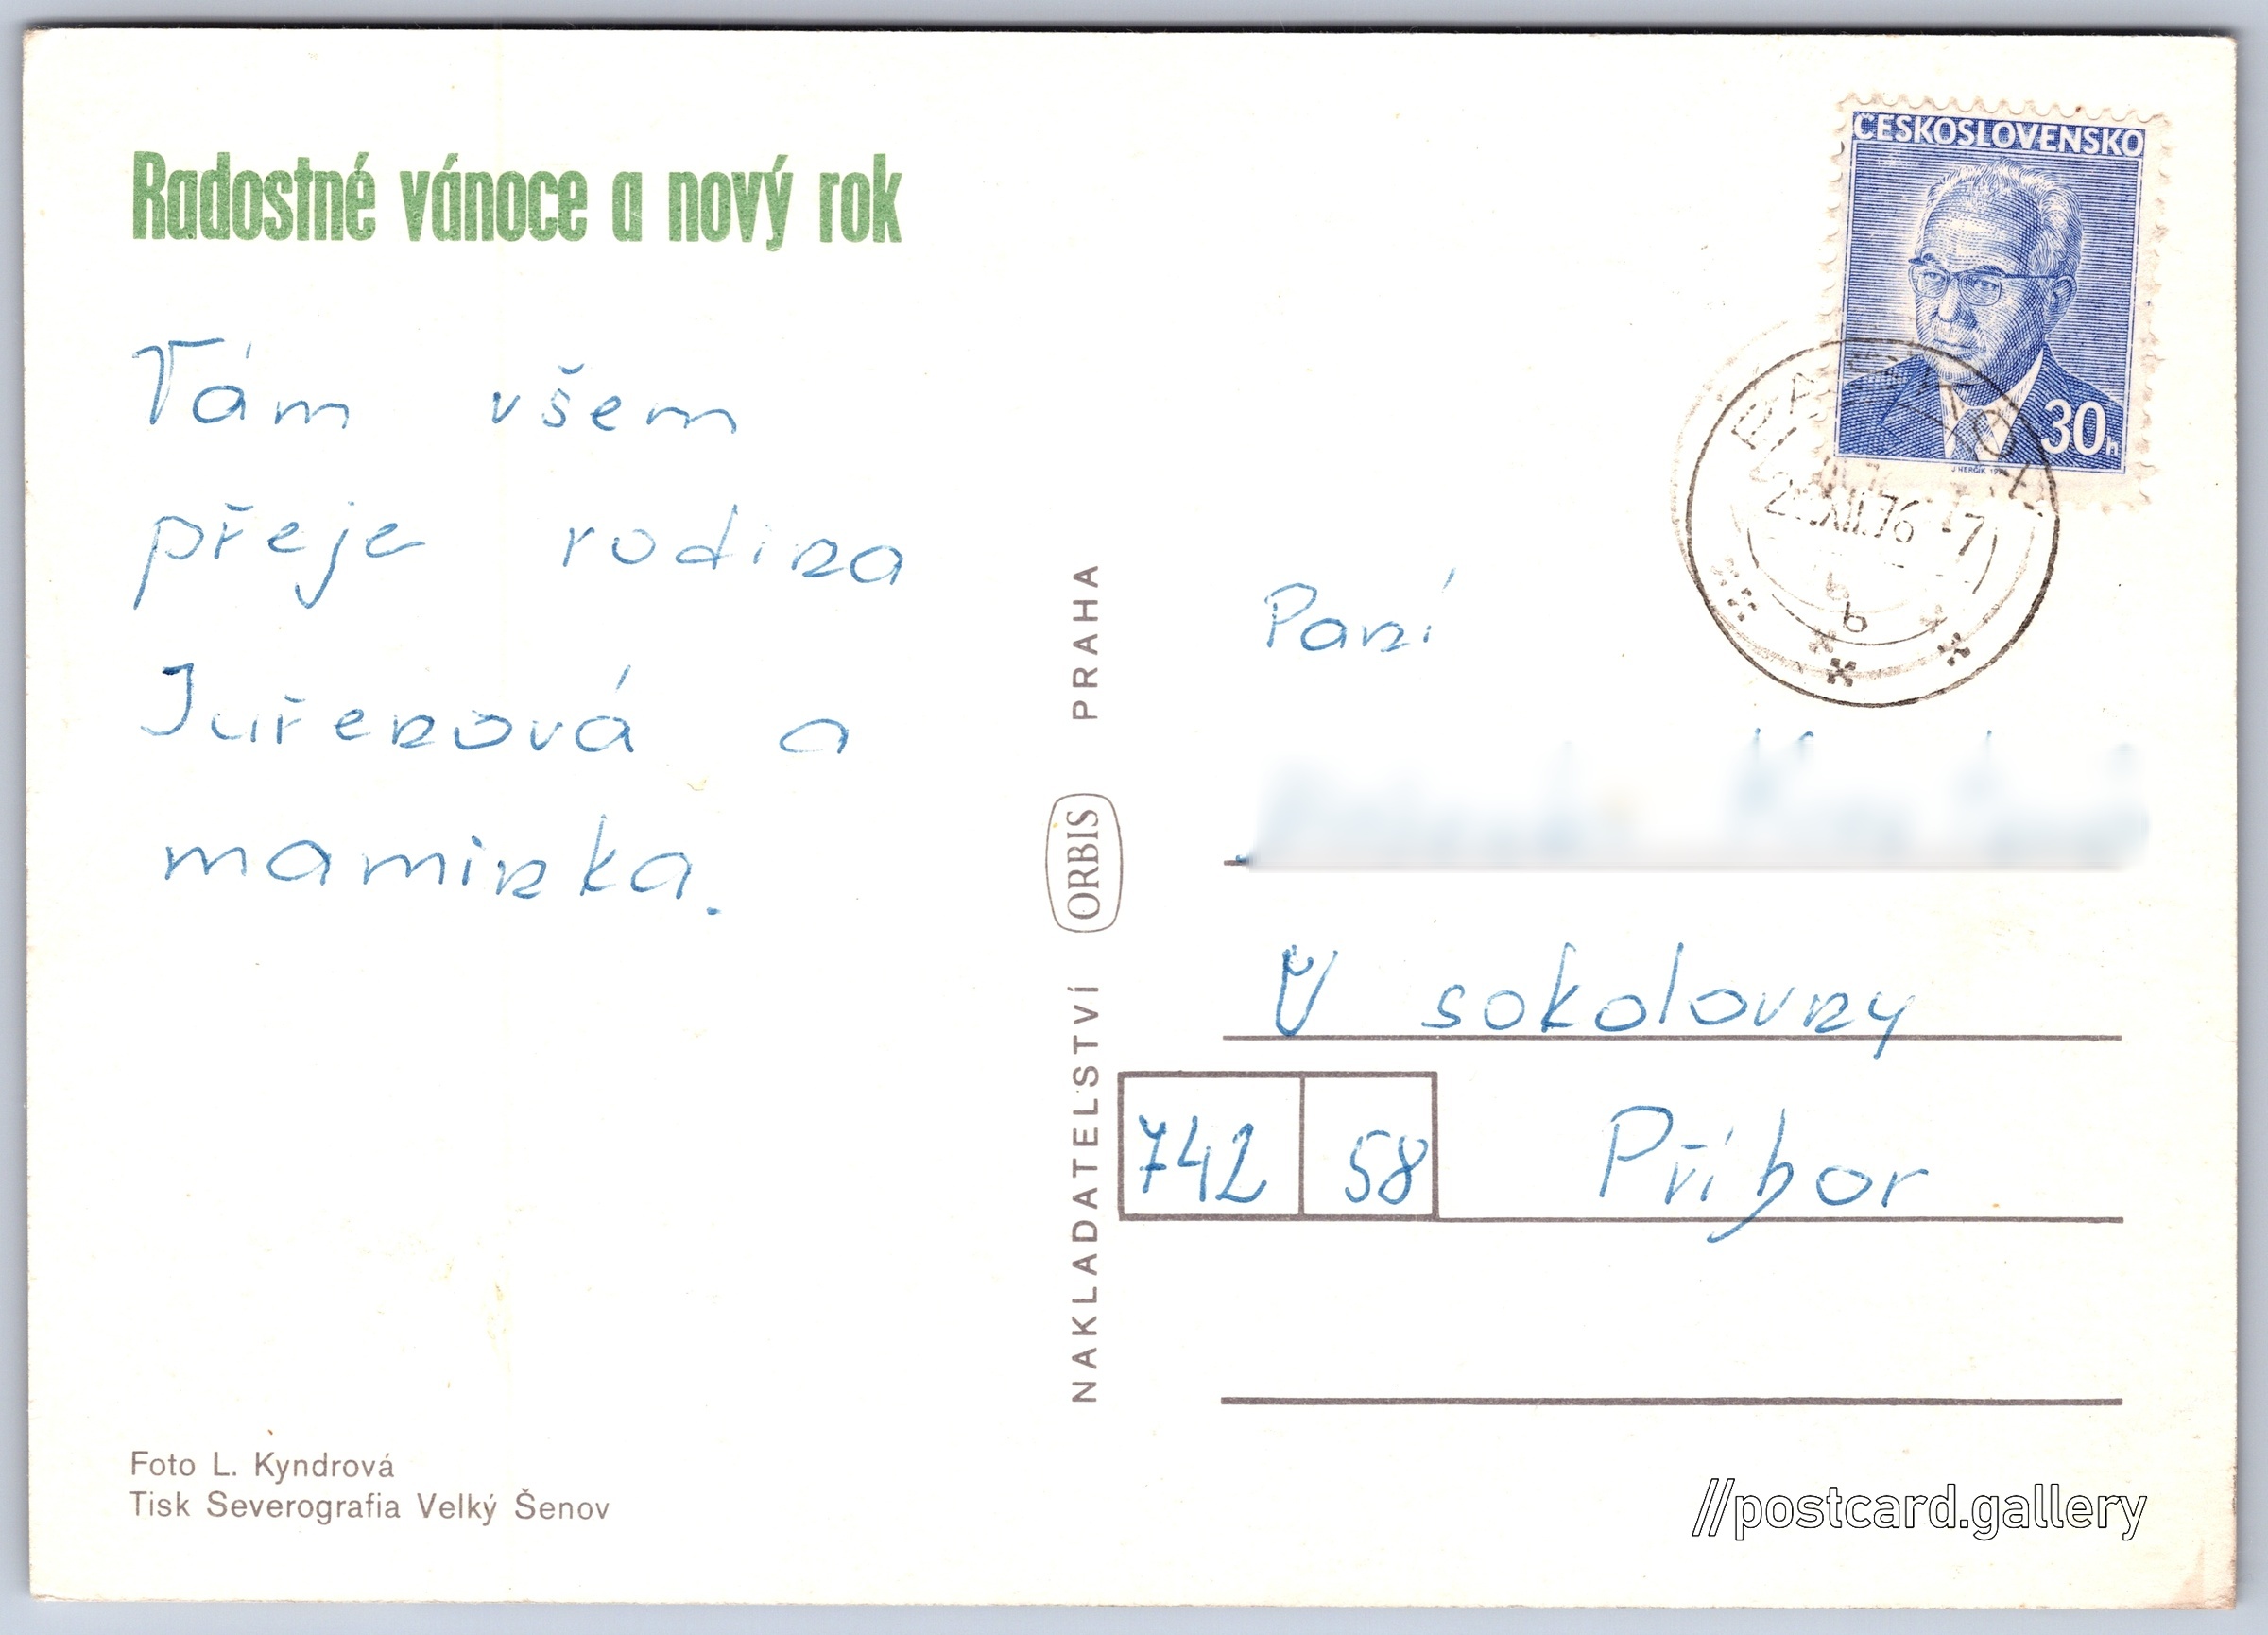 Radostné vánoce a nový rok
Vám všem
přeje rodina
Juřenová a
maminka.
Foto L. Kyndrová
Tisk Severografia Velký Šenov
NAKLADATELSTVÍ ORBIS PRAHA
ČESKOSLOVENSKO
30h
XII.76 -7
b
Paní
U sokolovny
742 58 Příbor
//postcard.gallery